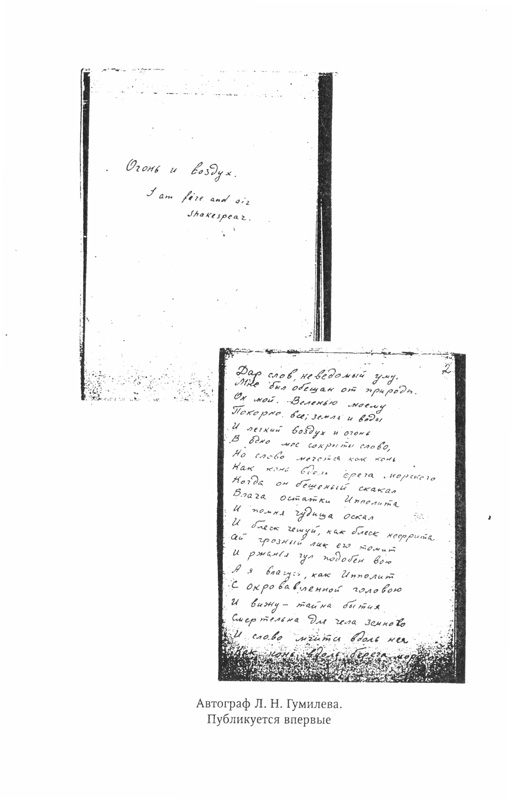 Огонь и воздух.
I am fire and air
Shakespear.
2
Дар слов, неведомый уму,
Мне был обещан от природы.
Он мой. Веленью моему
Покорно все; земля и воды
И легкий воздух и огонь
В одно мое сокрыты слово,
Но слово мечется как конь
Как конь вдоль брега морского
Когда он бешеный скакал
Влача останки Ипполита
И помня чудища оскал
И блеск чешуй, как блеск нефрита
Ай грозный лик его томит
И ржанья гул подобен вою
А я влачусь, как Ипполит
С окровавленной головою
И вижу – тайна бытия
Смертельна для чела земного
И слово мчится вдоль нея
Как конь вдоль берега мор
Автограф Л. Н. Гумилева.
Публикуется впервые